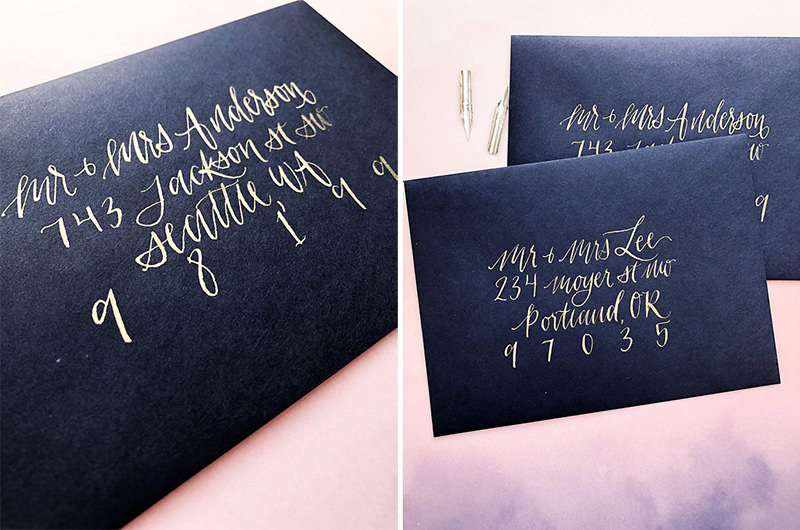 Mr & Mrs Anderson
743 Jackson St SW
Seattle WA
98199
Mr & Mrs Anderson
743
Mr & Mrs Lee
234 Moyer St NW
Portland, OR
97035